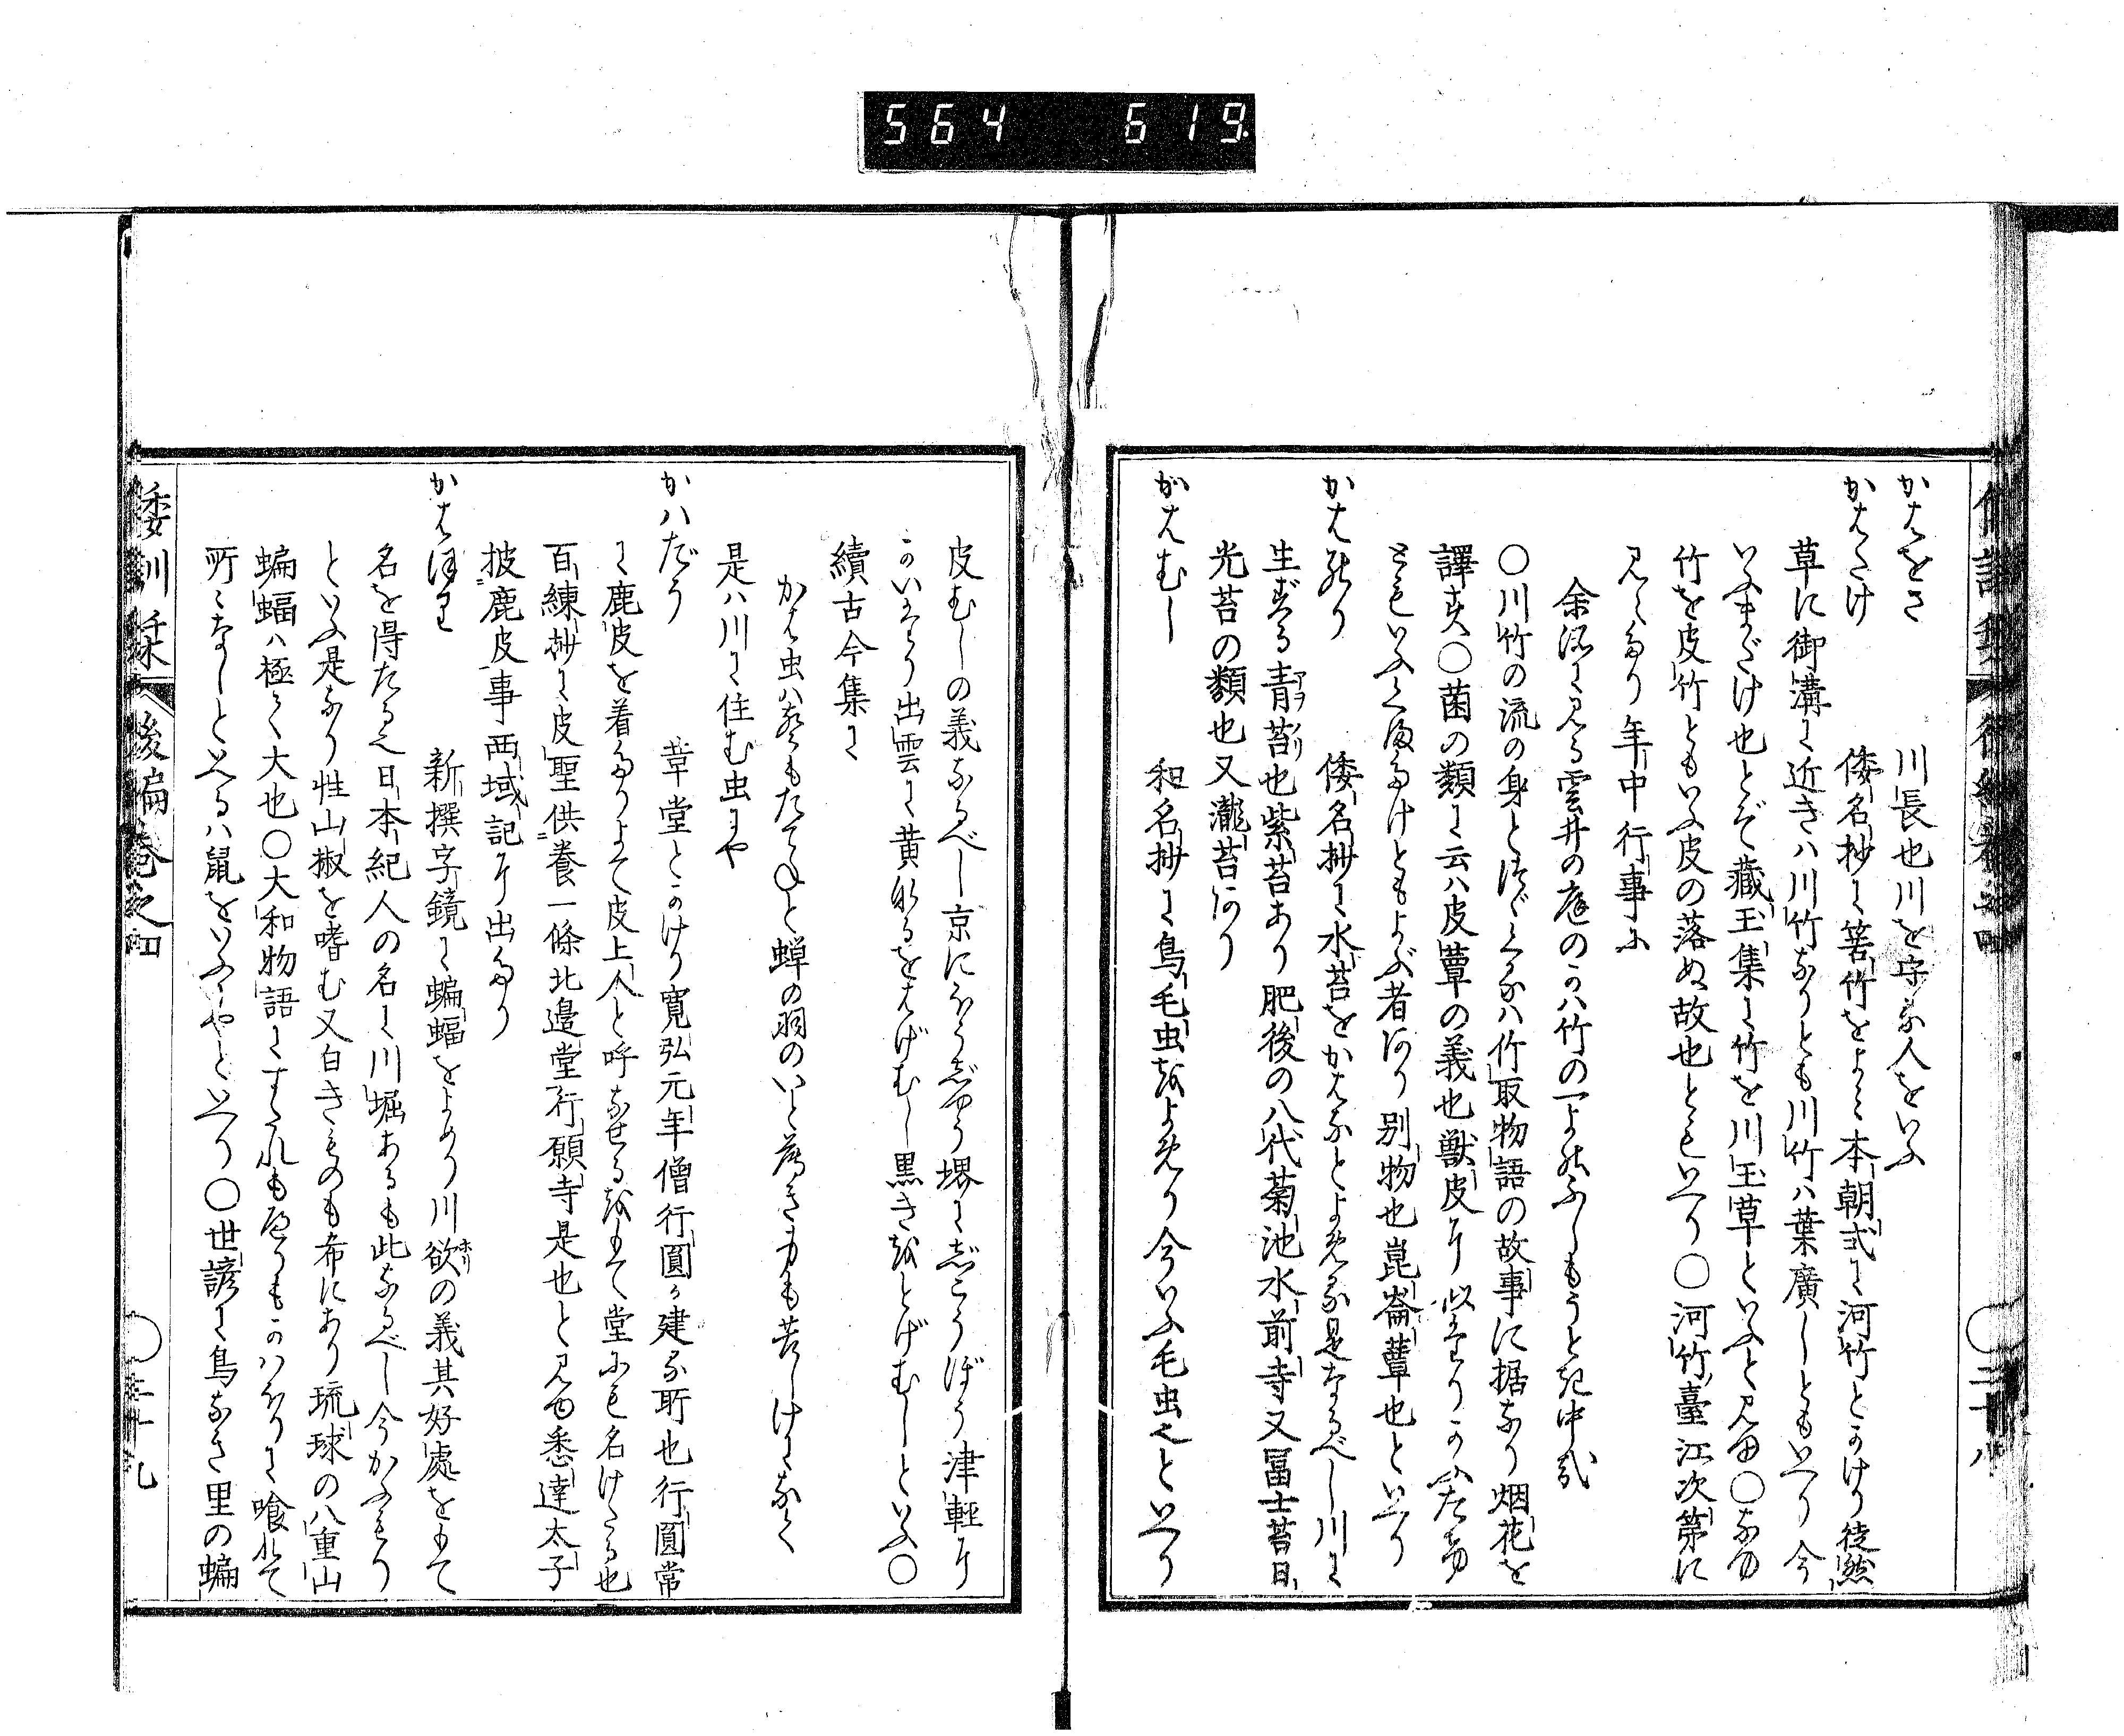 564 619
かはをさ 川長也川を守る人をいふ
かはたけ 倭名抄に箬竹をよみ本朝式に河竹とかけり徒然
草に御溝に近きハ川竹なりとも川竹ハ葉廣しともいへり今
いふまだけ也とぞ藏玉集に竹を川玉草といふと見ゆ○なゆ
竹を皮竹ともいふ皮の落ぬ故也ともいへり○河竹臺江次第に
見えたり年中行事に
余所に見る雲井の庭のかハ竹の
○川竹の流の身とつゞくるハ竹取物語の故事に据なり烟花を
譯す○菌の類に云ハ皮蕈の義也獣皮に似たりかふたけ
ともいふくまたけともよぶ者あり別物也崑崙蕈也といへり
かはのり 倭名抄に水苔をかはなとよめる是なるべし川に
生ずる青苔也紫苔あり肥後の八代菊池水前寺又冨士苔日
アヲノリ
光苔の類也又瀧苔あり
かはむし 和名抄に鳥毛虫をよめり今いふ毛虫也といへり
倭訓栞 後編巻之四 ○二十八
皮むしの義なるべし京にほうじやう堺にじこうばう津軽に
かいたかり出雲に黄なるをはげむし黒きをとげむしといふ○
續古今集に
かは虫ハ聲もたてねと蝉の羽のいと薄き身も苦しけになく
是ハ川に住む虫にや
かハだう 革堂とかけり寛弘元年僧行圓か建る所也行圓常
に鹿皮を着たりよて皮上人と呼なせるをもて堂にも名けたる也
百練抄に皮聖供養一條北邉堂行願寺是也と見ゆ悉達太子
披鹿皮事西域記に出たり
かはほり 新撰字鏡に蝙蝠をよめり川欲の義其好處をもて
ホリ
名を得たる也日本紀人の名に川堀あるも此なるべし今かふもり
といふ是なり性山椒を嗜む又白きものも希にあり琉球の八重山
蝙蝠ハ極て大也○大和物語にすたれもへりもかハほりに喰れて
所々なしといへるハ鼠をいふにやといへり○世諺に鳥なき里の蝙
倭訓栞 後編巻之四 ○二十九